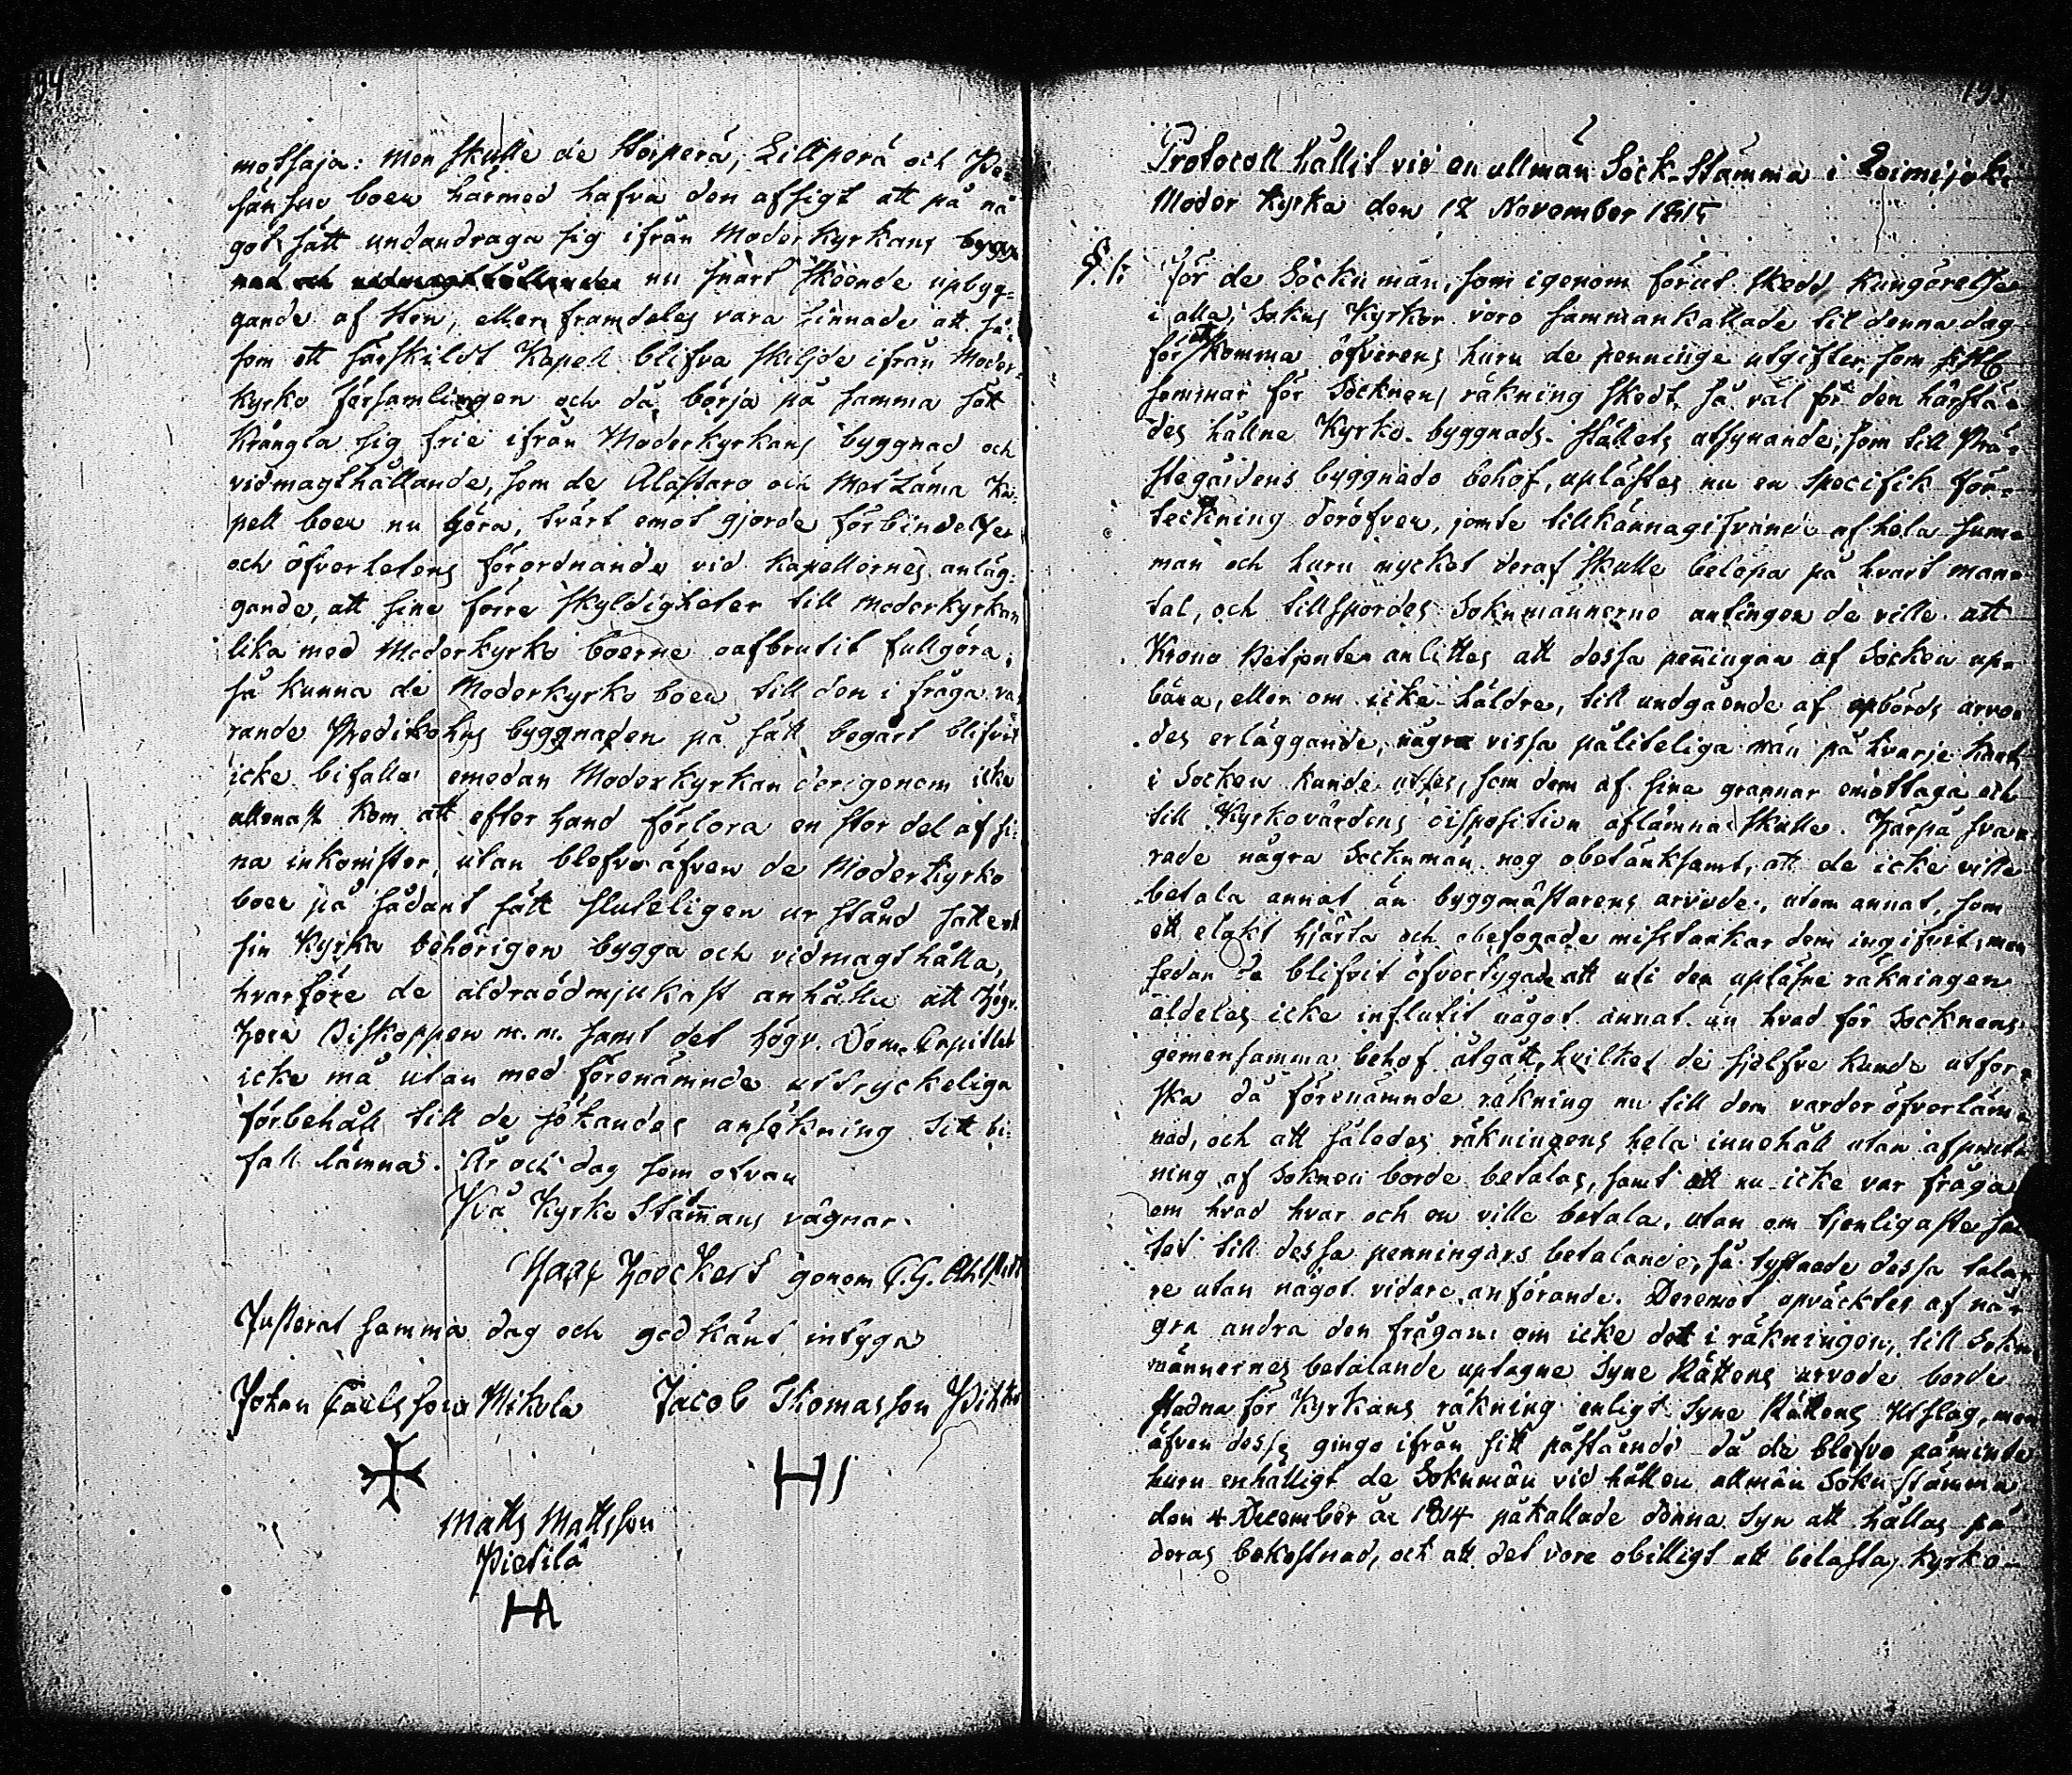 94
motsaja: Men skulle de Storperä, Lillperä och Pe-
sänsuo boer härmed hafva den afsigt att på nå-
got sätt undandraga sig ifrån Moderkyrkans bygg-
nad och vidmagthållande nu snart skeende upbyg-
gande af Sten, eller framdeles vara sinnade att så-
som ett särskildt Kapell blifva skiljde ifrån Moder-
kyrko församlingen och då börja på samma sätt
krångla sig frie ifrån Moderkyrkans byggnad och
vidmagthållande, som de Alastaro och Metzäma Ka-
pell boer nu göra, tvärt emot gjorde förbindelser
och öfverhetens förordnande vid Kapellernes anläg-
gande, att sine förre skyldigheter till Moderkyrkan
lika med Moderkyrko boerne oafbrutit fullgöra;
så kunna de Moderkyrko boer till den i fråga va-
rande Predikohus byggnaden på sätt begärt blifvit
icke bifalla emedan Moderkyrkan derigenom icke
allenast kom att efter hand förlora en stor del af si-
na inkomster, utan blefvo äfven de Moderkyrko
boer på sådant sätt sluteligen ur stånd satte att
sin Kyrka behörigen bygga och vidmagthålla,
hvarföre de aldraödmjukast anhålla att Högv.
Herr Biskoppen m.m. samt det Högv. Dom-Capitlet
icke må utan med förenämnde uttryckeliga
förbehåll till de sökandes ansökning sitt bi-
fall lämna. År och dag som ofvan
På Kyrko Stämans vägnar
Hans Hoeckert genom C.G. Ahlstedt
Justerat samma dag och godkänt intyga
Johan Carlsson Mikola Jacob Thomasson
Matts Mattsson
Pietilä
HA
195
Protocoll hållit vid en allmän Sock-Stämma i Loimijoki
Moder Kyrka den 12 November 1815
§.1: För de Sockn män, som igenom förut skedd Kungörelse
i alla Sokns Kyrkor voro sammankallade til denna dag
för att komma öfverens huru de penninge utgifter, som
sommar för Socknens räkning skedt, så väl för den härstä-
des hållne Kyrko-byggnads-ställets afsynande, som till Prä-
stegårdens byggnads behof, uplästes nu en Specifik för-
teckning deröfver, jemte tillkännagifvande af hela sum-
man och huru mycket deraf skulle belöpa på hvart man-
tal, och tillspordes Soknemännerne antingen de ville att
Krono Betjenter anlittes att dessa penningar af Socken up-
bära, eller om icke häldre, till undgående af upbörds arvo-
des erläggande, några vissa påliteliga män på hvarje kant
i Socken kunde utses, som dem af sina grannar emottaga och
till Kyrkovärdens disposition aflämna skulle. Härpå sva-
rade några Socknmän nog obetänksamt, att de icke ville
betala annat än byggmästarens arvode, utom annat, som
ett elakt hjärta och obefogade misstankar dem ingifvit; men
sedan de blifvit öfvertygade att uti den upläsne räkningen
aldeles icke influtit något annat än hvad för Socknens
gemensamma behof åtgått, hvilket de sjelfve kunde utfor-
ska då förenämnde räkning nu till dem varder öfverläm-
nad, och att således räkningens hela innehåll utan afprut-
ning af Soknen borde betalas, samt att nu icke var fråga
om hvad hvar och en ville betala, utan om tjenligaste sät-
tet till dessa penningars betalande, så tystnade dessa tala-
re utan något vidare anförande. Deremot upväcktes af nå-
gra andra den frågan: om icke det i räkningen, till Sokn-
männernes betalande uptagne Syne Rättens arvode borde
stadna för Kyrkans räkning enligt Syne Rättens Utslag, men
äfven desse gingo ifrån sitt påstående då de blefvo påminde
huru enhälligt de Soknmän vid hållen allmän Sokn stämma
den 4 December år 1814 påkallade denna Syn att hållas på
deras bekostnad, och att det vore obilligt att belasta Kyrko-